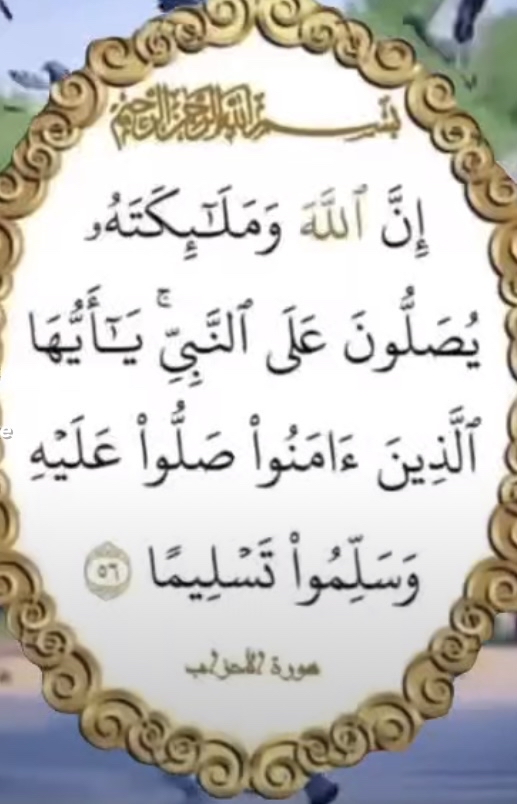 بسم الله الرحمن الرحيم
إِنَّ ٱللَّهَ وَمَلَـٰٓئِكَتَهُۥ
يُصَلُّونَ عَلَى ٱلنَّبِىِّ ۚ يَـٰٓأَيُّهَا
ٱلَّذِينَ ءَامَنُوا۟ صَلُّوا۟ عَلَيْهِ
وَسَلِّمُوا۟ تَسْلِيمًا ٥٦
سورة الأحزاب